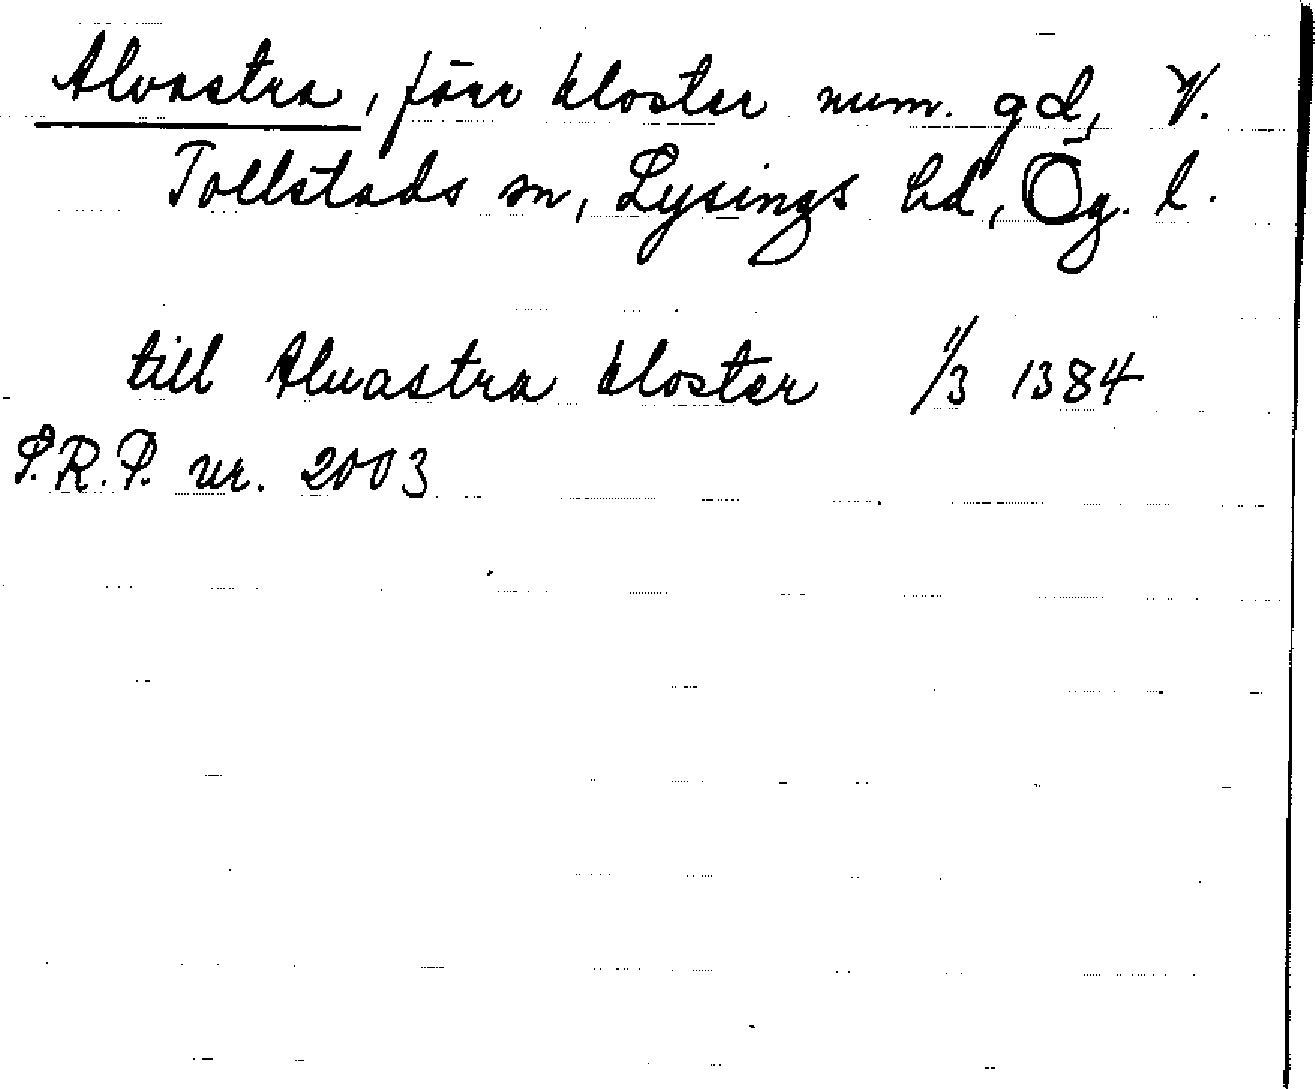 Alvastra, förr kloster num. gd, V.
Tollstads sn, Lysings hd, Ög. l.
till Aluastra kloster 11/3 1384
S.R.P. nr. 2003